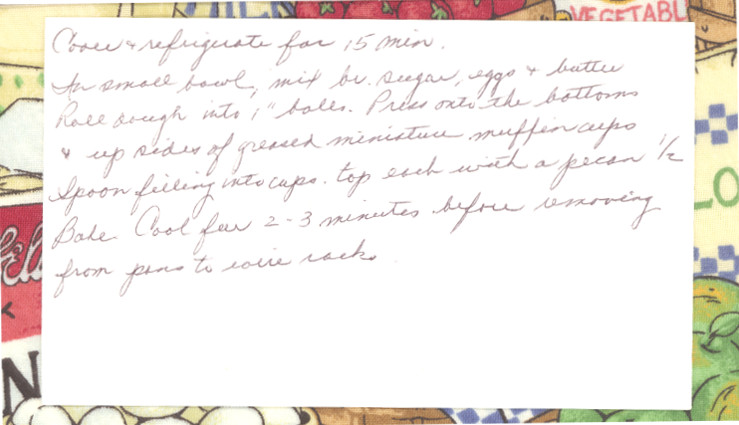 VEGETABL
Cover & refrigerate for 15 min.
In small bowl, mix br. sugar, eggs & butter
Roll dough into 1" balls. Press onto the bottoms
& up sides of greased miniature muffin cups
Spoon filling into cups. top each with a pecan 1/2
Bake Cool for 2-3 minutes before removing
from pans to wire racks.
LO
N